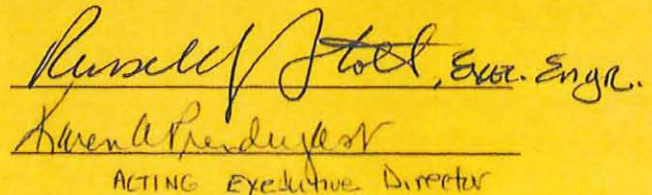 Russell J Stoll, Exec. Engr.
Karen A Prendergast
ACTING Executive Director